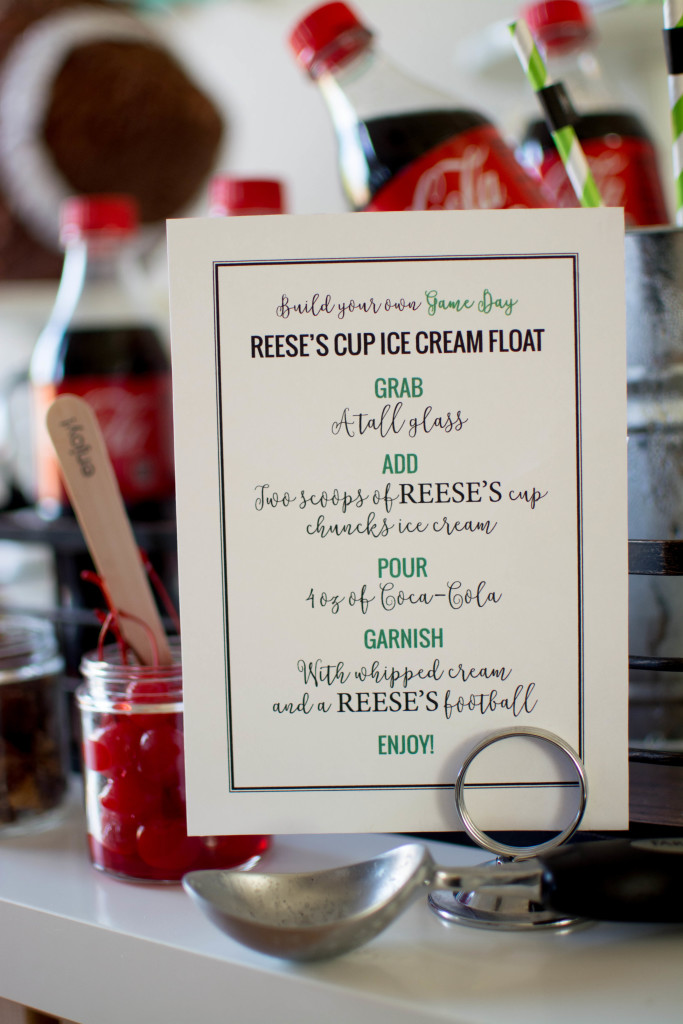 Build your own Game Day
REESE'S CUP ICE CREAM FLOAT
GRAB
A tall glass
ADD
Two scoops of REESE'S cup
chuncks ice cream
POUR
4oz of Coca-Cola
GARNISH
With whipped cream
and a REESE'S football
ENJOY!
enjoy!
Cola